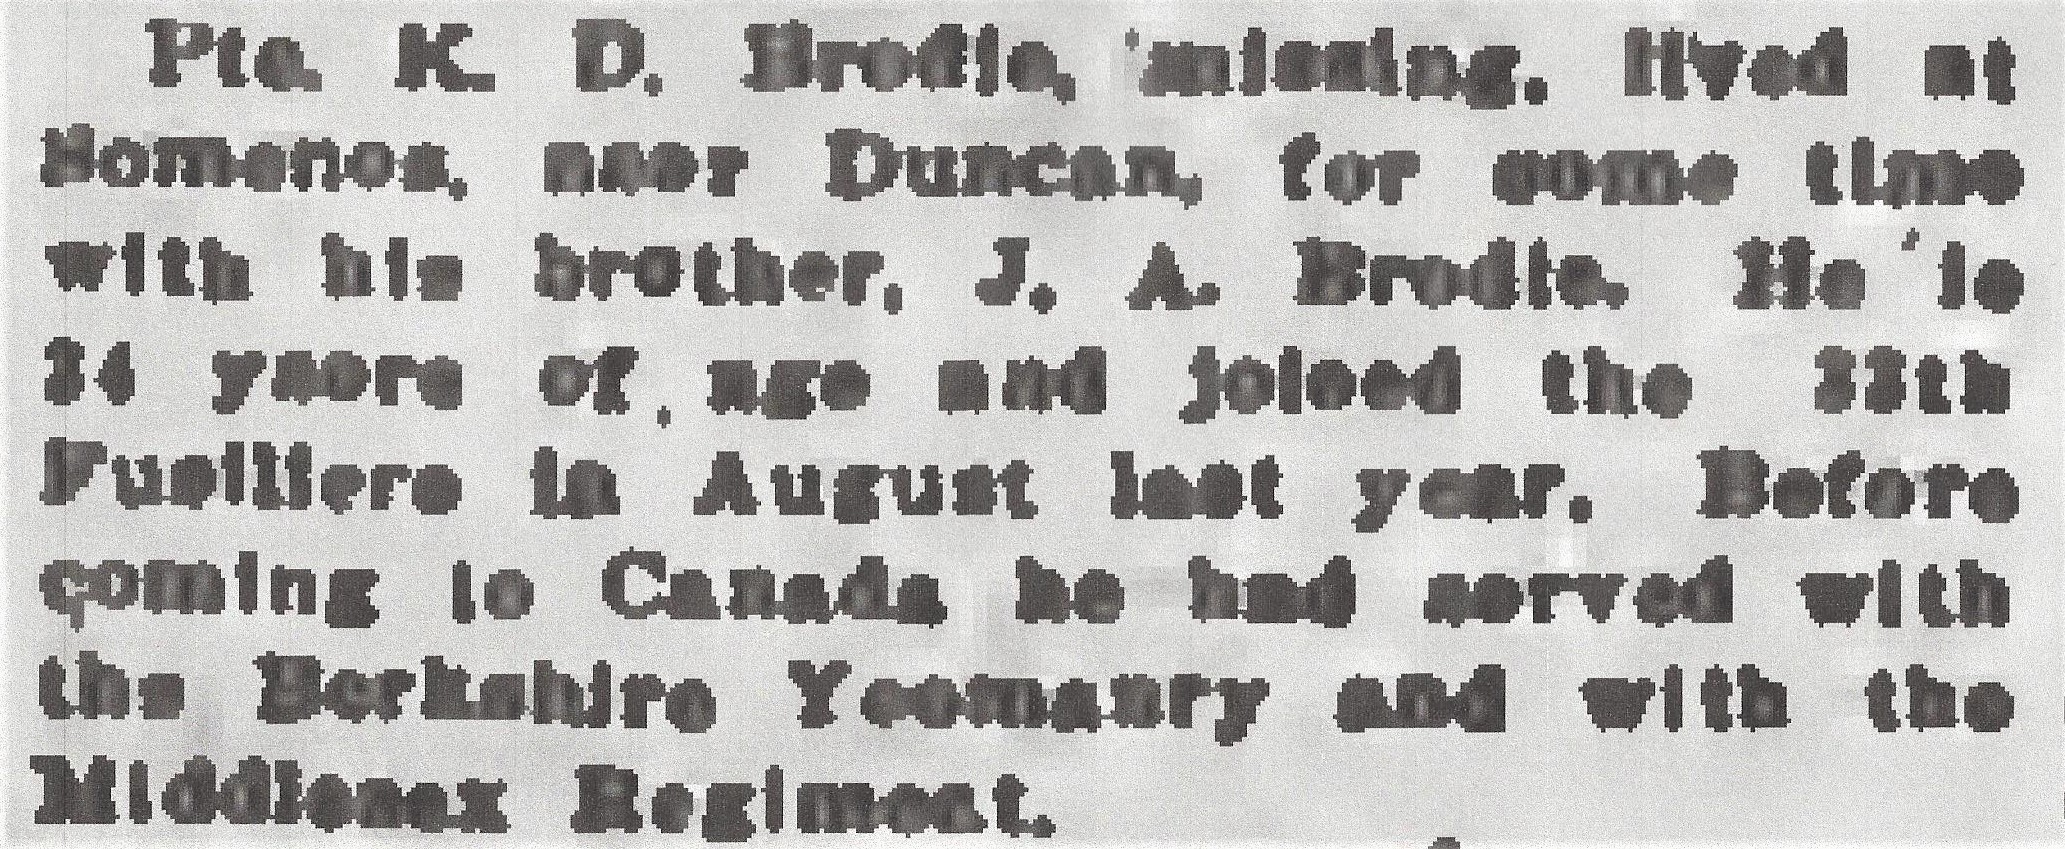 Pte. K. D. Brodie, missing, lived at
Somenos, near Duncan, for some time
with his brother, J. A. Brodie. He is
years of age and joined the
Fusiliers in August last year. Before
coming to Canada he had served with
the Berkshire Yeomanry and with the
Middlesex Regiment.